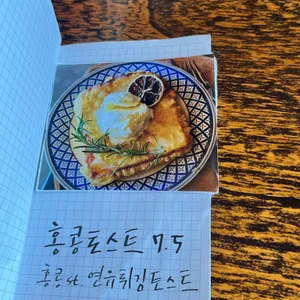 홍콩토스트 7.5
홍콩 st. 연유튀김토스트